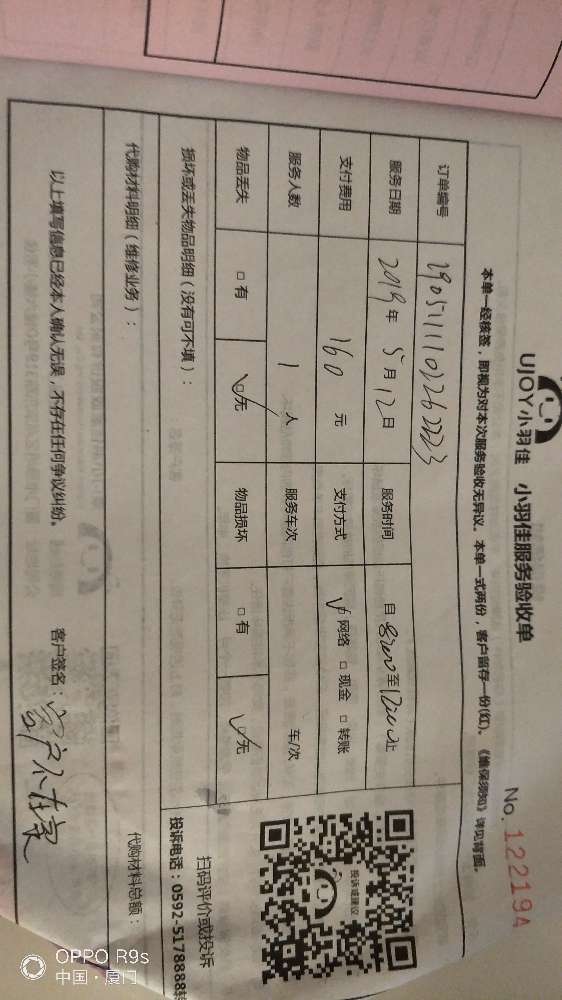 UJOY小羽佳 小羽佳服务验收单
No. 122194
本单一经核签，即视为对本次服务验收无异议。本单一式两份，客户留存一份(红)。《维保须知》详见背面。
订单编号
服务日期 2019年 5月12日 服务时间 自 8:00 至 12:00 止
支付费用 160 元 支付方式 ☑网络 □现金 □转账
服务人数 1 人 服务车次 车/次
物品丢失 □有 ☑无 物品损坏 □有 ☑无
损坏或丢失物品明细（没有可不填）：
投诉或建议
扫码评价或投诉
投诉电话：0592-5178888转
代购材料明细（维修业务）： 代购材料总额：
以上填写信息已经本人确认无误，不存在任何争议纠纷。 客户签名：客户不在家
OPPO R9s
中国·厦门